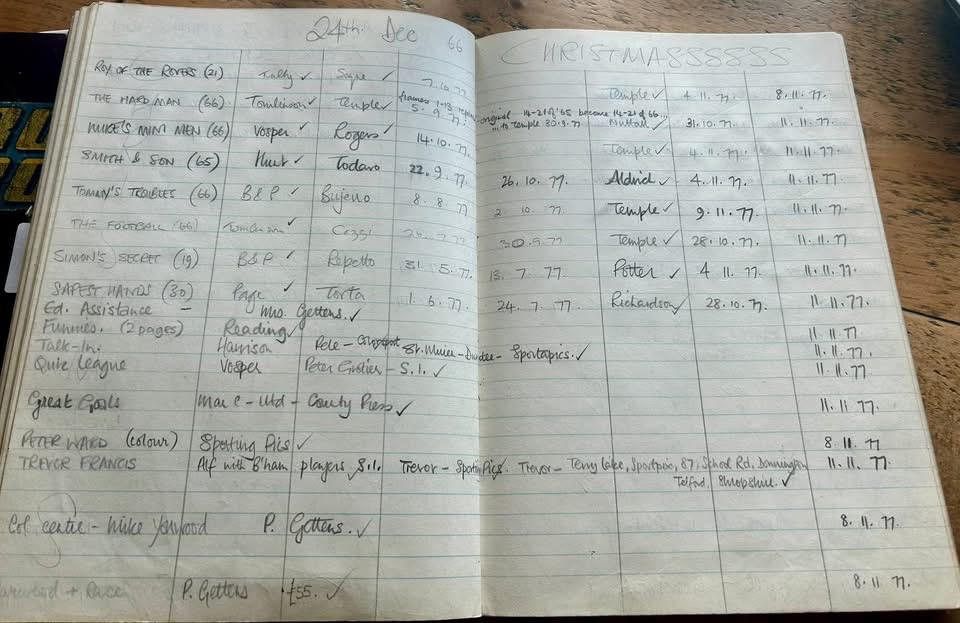 24th Dec 66 CHRISTMASSSSSSS
ROY OF THE ROVERS (21) Tully ✓ Sque ✓ 7.10.77 Temple ✓ 4.11.77. 8.11.77.
THE HARD MAN (66) Tomlinson ✓ Temple ✓ frames 1-13 5.9.77 original 14-21 of '65 become 14-21 of 66... to Temple 30.9.77 Nuttall ✓ 31.10.77. 11.11.77.
MIKE'S MINI MEN (66) Vosper ✓ Rogers ✓ 14.10.77. Temple ✓ 4.11.77. 11.11.77.
SMITH & SON (65) Hunt ✓ Todaro 22.9.77 26.10.77. Aldrid ✓ 4.11.77. 11.11.77.
TOMMY'S TROUBLES (66) B&P ✓ Bujeno 8.8.77 2 10.77 Temple ✓ 9.11.77. 11.11.77.
THE FOOTBALL (66) Tomlinson ✓ Ceggi 30.9.77 Temple ✓ 28.10.77. 11.11.77
SIMON'S SECRET (19) B&P ✓ Repetto 31.5.77. 13.7.77 Potter ✓ 4 11.77. 11.11.77.
SAFEST HANDS (30) Page ✓ Torta 1.6.77. 24.7.77 Richardson ✓ 28.10.77. 11.11.77.
Ed. Assistance – Mrs. Gettens. ✓
Funnies. (2 pages) Reading ✓ 11.11.77
Talk-In. Harrison Pele – Colorsport St. Mirren – Dundee – Sportapics. ✓ 11.11.77.
Quiz League Vosper Peter – S.I. ✓ 11.11.77
Great Goals Man C – Utd – County Press ✓ 11.11.77.
PETER WARD (colour) Sporting Pics ✓ 8.11.77
TREVOR FRANCIS Alf with B'ham players S.I. Trevor – Sporting Pics. Trevor – Terry Lake, Sportpix, 87, School Rd, Donnington 11.11.77.
Telford, Shropshire. ✓
Col centre – Mike Yarwood P. Gettens. ✓ 8.11.77.
Yarwood + Race P. Gettens £55. ✓ 8.11.77.